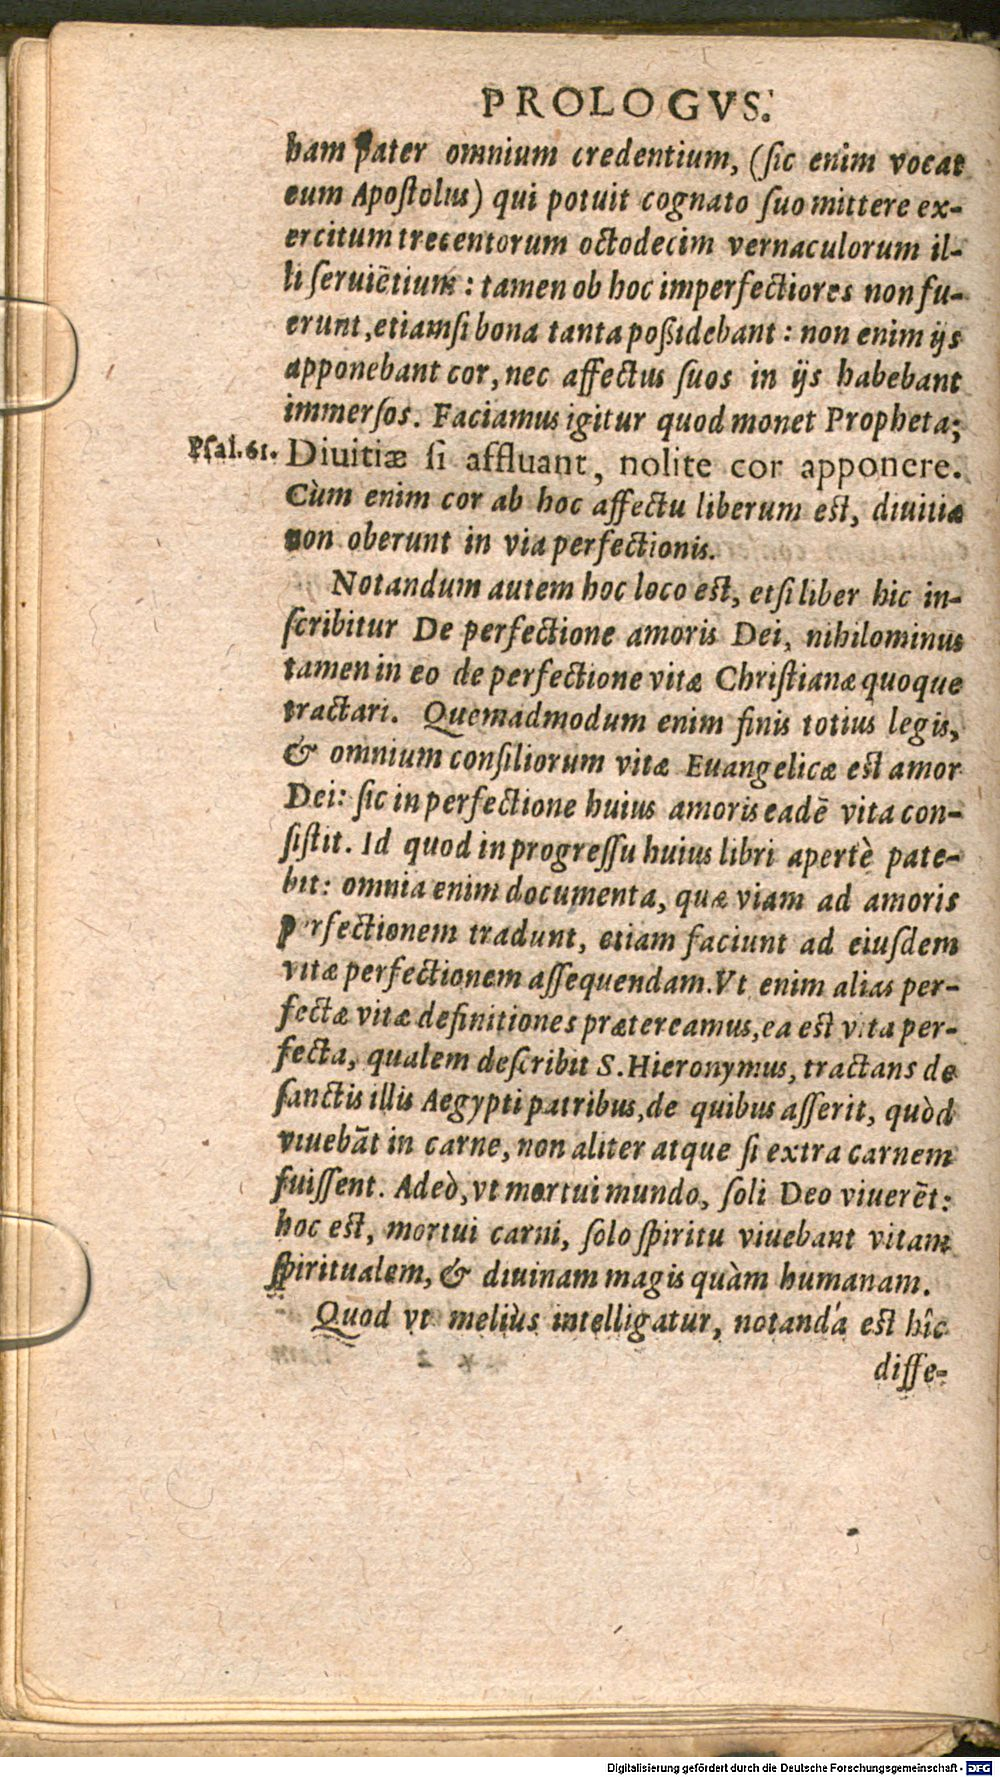 PROLOGVS.
ham pater omnium credentium, (ſic enim vocat
eum Apoſtolus) qui potuit cognato ſuo mittere ex-
ercitum trecentorum octodecim vernaculorum il-
li ſeruiẽtium : tamen ob hoc imperfectiores non fu-
erunt, etiamſi bona tanta poßidebant : non enim ijs
apponebant cor, nec affectus ſuos in ijs habebant
immerſos. Faciamus igitur quod monet Propheta;
Pſal.61. Diuitiæ ſi affluant, nolite cor apponere.
Cùm enim cor ab hoc affectu liberum eſt, diuitiæ
non oberunt in via perfectionis.
Notandum autem hoc loco eſt, etſi liber hic in-
ſcribitur De perfectione amoris Dei, nihilominus
tamen in eo de perfectione vitæ Chriſtianæ quoque
tractari. Quemadmodum enim finis totius legis,
& omnium conſiliorum vitæ Euangelicæ eſt amor
Dei: ſic in perfectione huius amoris eadẽ vita con-
ſiſtit. Id quod in progreſſu huius libri apertè pate-
bit: omnia enim documenta, quæ viam ad amoris
perfectionem tradunt, etiam faciunt ad eiuſdem
vitæ perfectionem aſſequendam. Vt enim alias per-
fectæ vitæ definitiones prætereamus, ea eſt vita per-
fecta, qualem deſcribit S. Hieronymus, tractans de
ſanctis illis Aegypti patribus, de quibus aſſerit, quòd
viuebãt in carne, non aliter atque ſi extra carnem
fuiſſent. Adeò, vt mortui mundo, ſoli Deo viuerẽt:
hoc eſt, mortui carni, ſolo ſpiritu viuebant vitam
ſpiritualem, & diuinam magis quàm humanam.
Quod vt meliùs intelligatur, notanda eſt hîc
diffe-
Digitalisierung gefördert durch die Deutsche Forschungsgemeinschaft - DFG